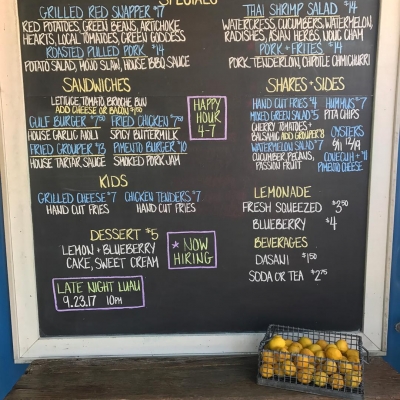 SPECIALS
GRILLED RED SNAPPER $17
RED POTATOES, GREEN BEANS, ARTICHOKE
HEARTS, LOCAL TOMATOES, GREEN GODDESS
ROASTED PULLED PORK $14
POTATO SALAD, MOJO SLAW, HOUSE BBQ SAUCE
THAI SHRIMP SALAD $14
WATERCRESS, CUCUMBERS, WATERMELON,
RADISHES, ASIAN HERBS, NOUC CHAM
PORK + FRITES $14
PORK TENDERLOIN, CHIPOTLE CHIMICHURRI
SANDWICHES
LETTUCE, TOMATO, BRIOCHE BUN
ADD CHEESE OR BACON $1.50
GULF BURGER $7.50
HOUSE GARLIC AIOLI
FRIED CHICKEN $7.50
SPICY BUTTERMILK
FRIED GROUPER $13
HOUSE TARTAR SAUCE
PIMENTO BURGER $10
SMOKED PORK JAM
HAPPY
HOUR
4-7
SHARES + SIDES
HAND CUT FRIES $4
MIXED GREEN SALAD $5
CHERRY TOMATOES +
BALSAMIC ADD GROUPER $
WATERMELON SALAD $7
CUCUMBER, PECANS,
PASSION FRUIT
HUMMUS $7
PITA CHIPS
OYSTERS
CONECUH + $11
PIMENTO CHEESE
KIDS
GRILLED CHEESE $7
HAND CUT FRIES
CHICKEN TENDERS $7
HAND CUT FRIES
DESSERT $5
LEMON + BLUEBERRY
CAKE, SWEET CREAM
* NOW
HIRING
LATE NIGHT LUAU
9.23.17 10PM
LEMONADE
FRESH SQUEEZED $3.50
BLUEBERRY $4
BEVERAGES
DASANI $1.50
SODA OR TEA $2.75